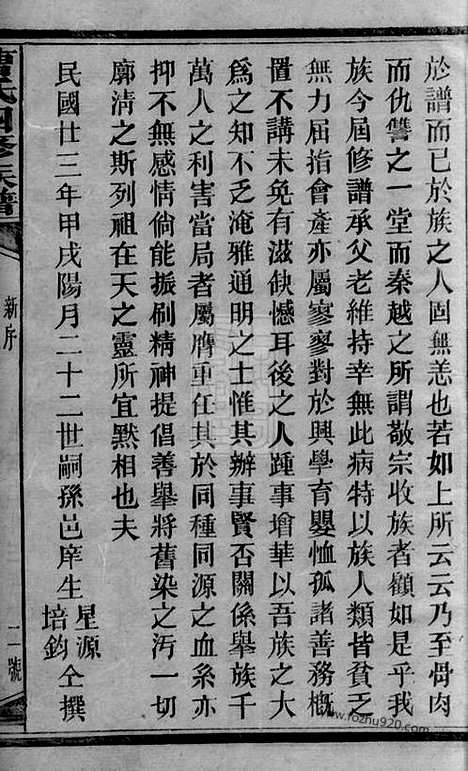 於譜而已於族之人固無恙也若如上所云云乃至骨肉
而仇讐之一堂而秦越之所謂敬宗收族者顧如是乎我
族今屆修譜承父老維持幸無此病特以族人類皆貧乏
無力屆指會產亦屬寥寥對於興學育嬰恤孤諸善務概
置不講未免有滋缺憾耳後之人踵事增華以吾族之大
爲之知不乏淹雅通明之士惟其辦事賢否關係舉族千
萬人之利害當局者屬膺重任其於同種同源之血系亦
抑不無感情倘能振刷精神提倡善舉將舊染之汚一切
廓清之斯列祖在天之靈所宜默相也夫
民國廿三年甲戌陽月二十二世嗣孫邑庠生 星源 培鈞 仝撰
氏四修族譜
新序
二號
www.rozhu920.com